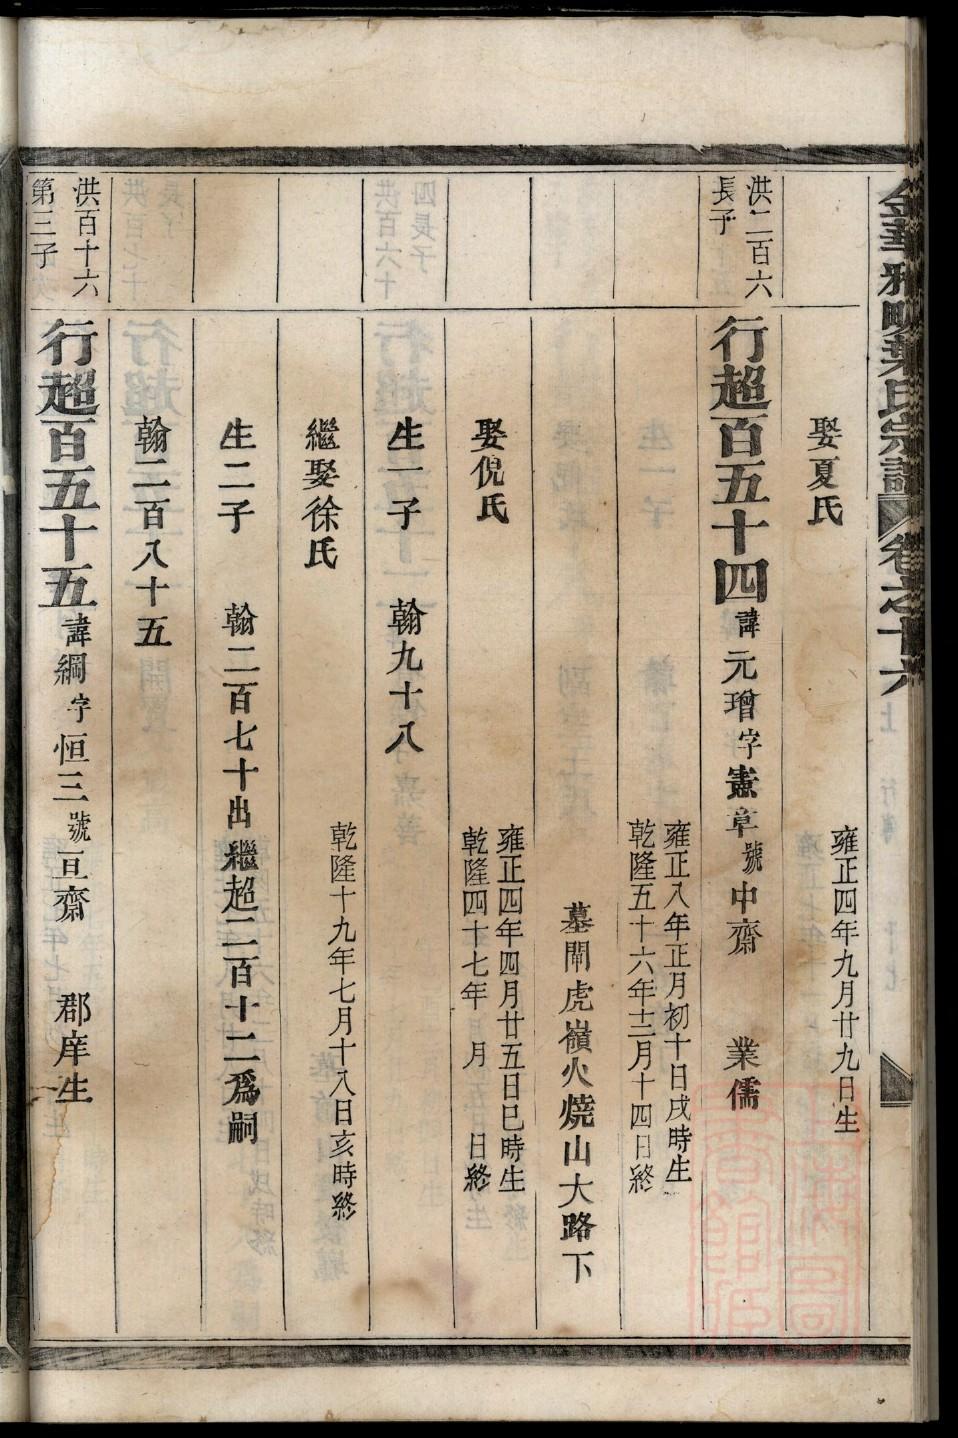 金華雅畈葉氏宗譜 卷之十六上 行傳
娶夏氏 雍正四年九月廿九日生
洪二百六
長子
行超百五十四 諱元璔字憲章號中齋 業儒
雍正八年正月初十日戌時生
乾隆五十六年十二月十四日終
墓閘虎嶺火燒山大路下
娶倪氏 雍正四年四月廿五日巳時生
乾隆四十七年 月 日終
生一子 翰九十八
繼娶徐氏 乾隆十九年七月十八日亥時終
生二子 翰二百七十出繼超二百十二爲嗣
翰二百八十五
洪百十六
第三子
行超百五十五 諱綱字恒三號亘齋 郡庠生